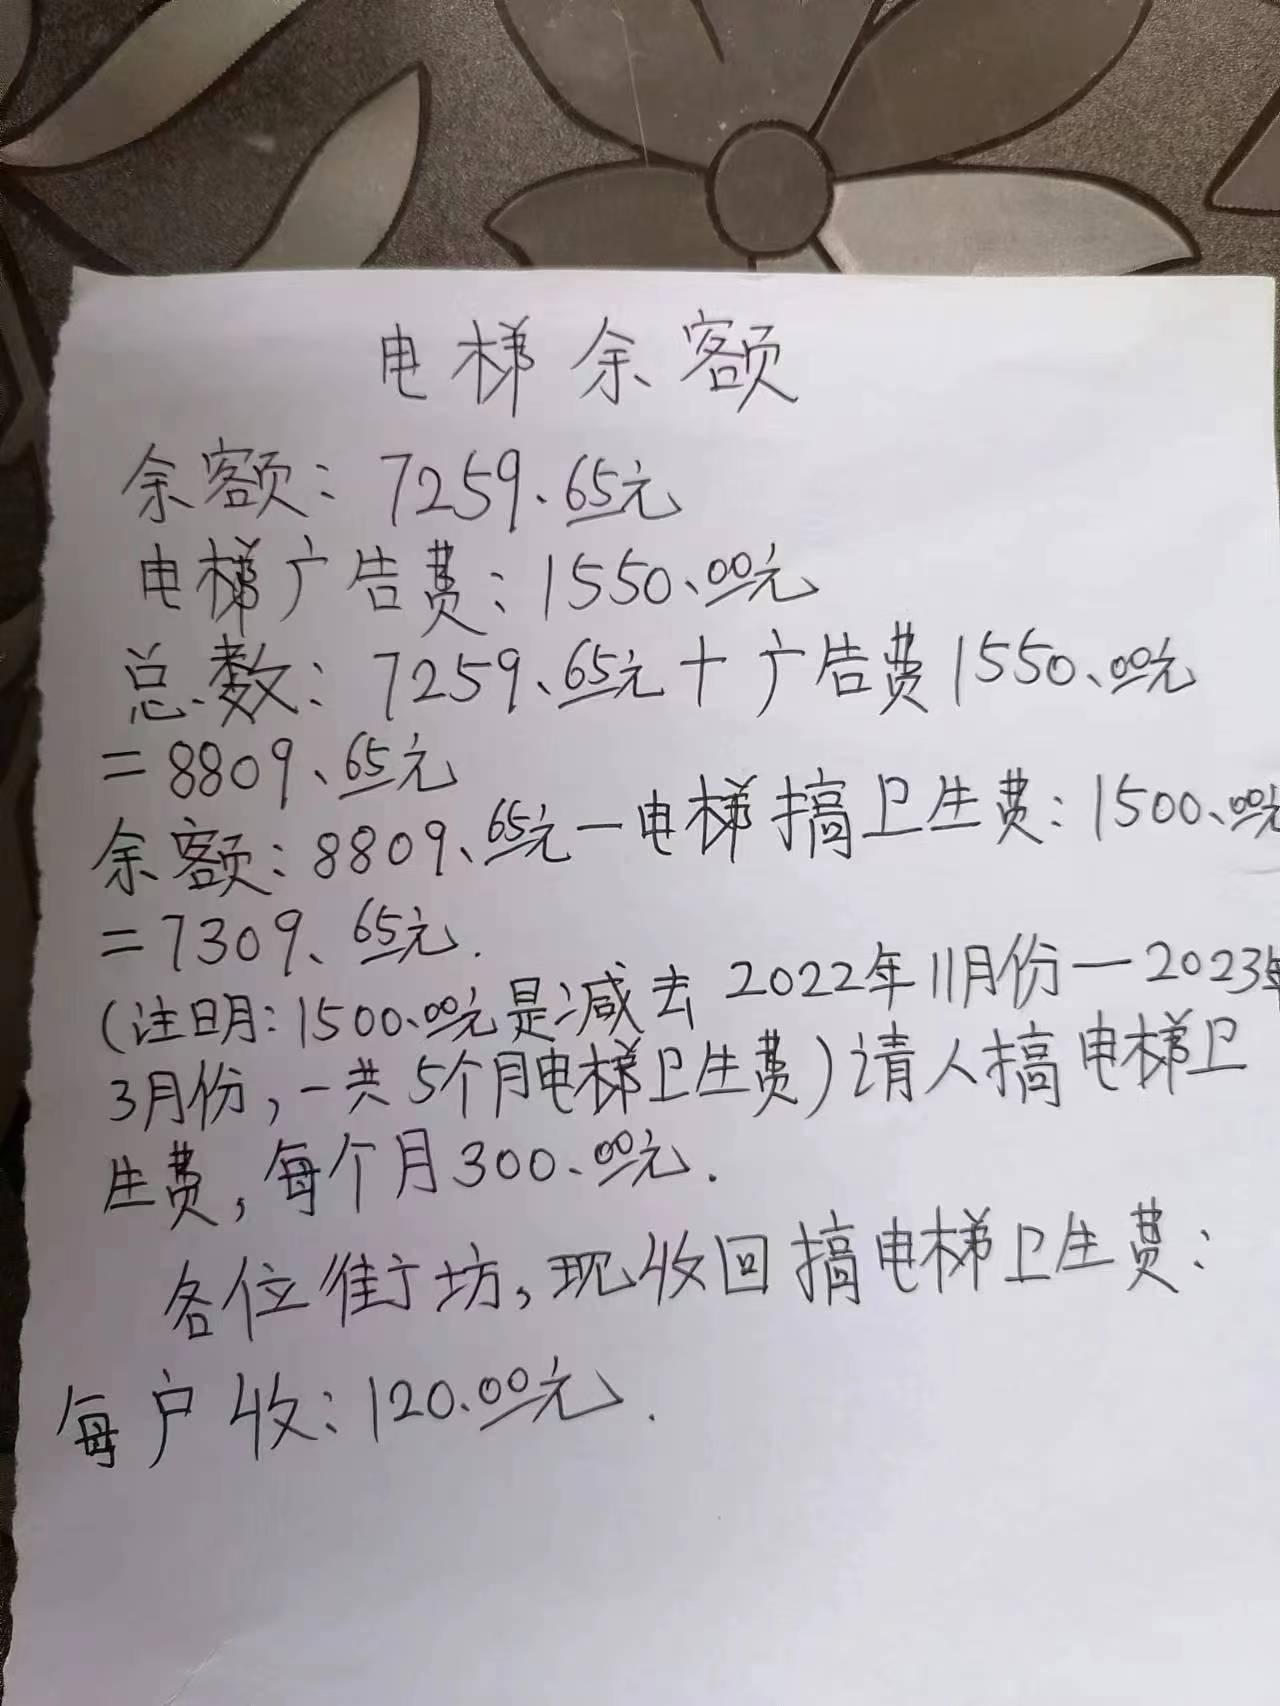 电梯余额
余额：7259.65元
电梯广告费：1550.00元
总数：7259.65元+广告费1550.00元
=8809.65元
余额：8809.65元-电梯搞卫生费：1500.00元
=7309.65元.
(注明：1500.00元是减去2022年11月份-2023年
3月份，一共5个月电梯卫生费)请人搞电梯卫
生费，每个月300.00元.
各位街坊，现收回搞电梯卫生费：
每户收：120.00元.